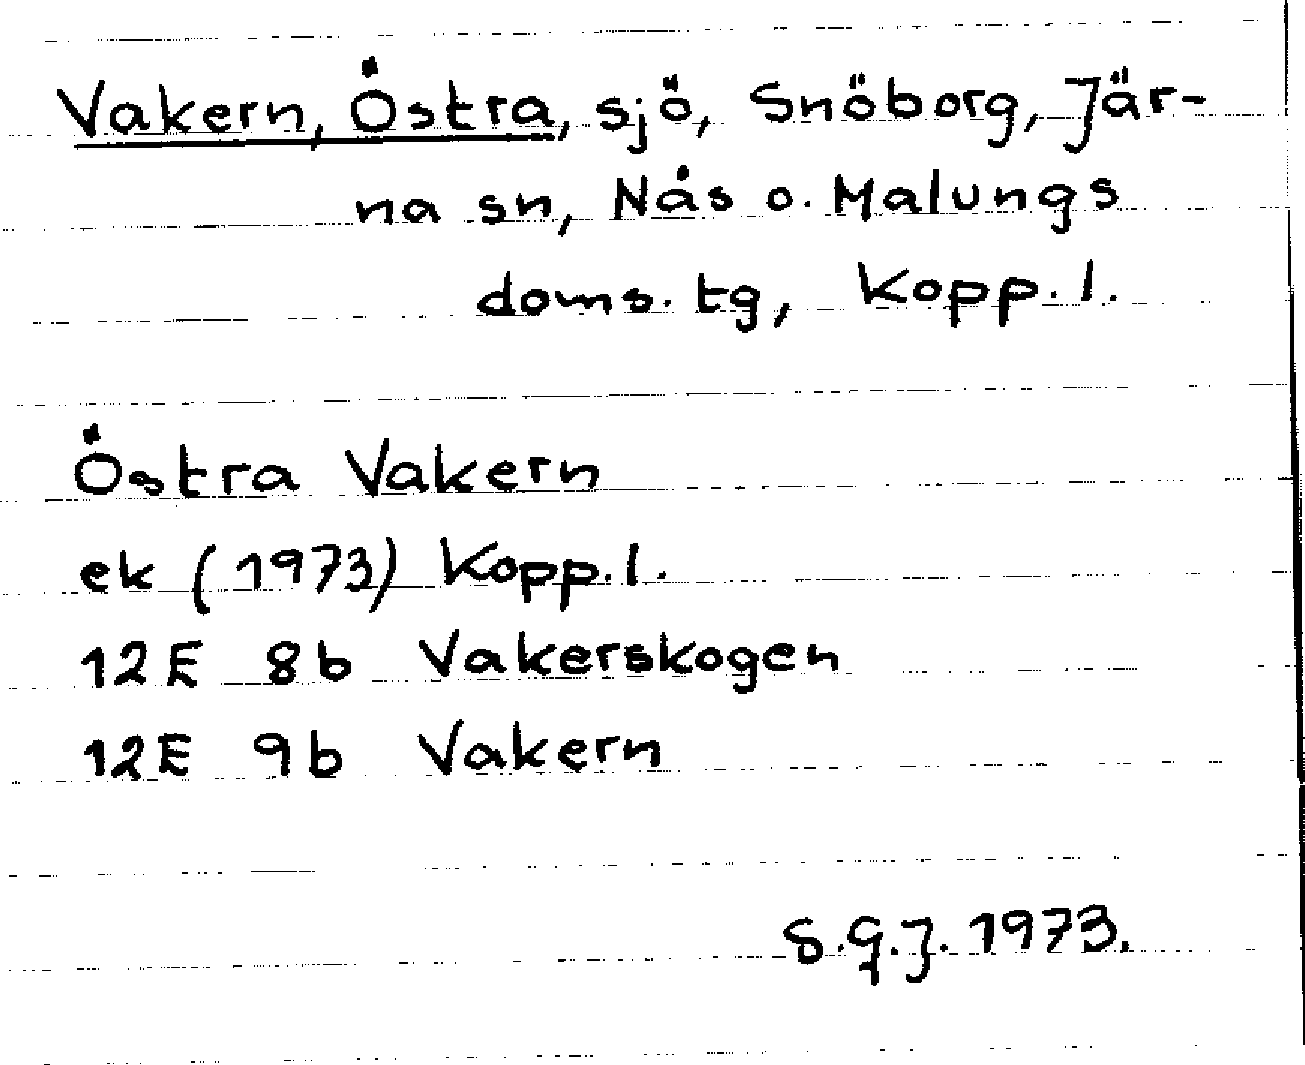 Vakern, Östra, sjö, Snöborg, Jär-
na sn, Nås o. Malungs
doms. tg, Kopp. l.
Östra Vakern
ek (1973) Kopp. l.
12E 8b Vakerskogen
12E 9b Vakern
S.G.J. 1973.